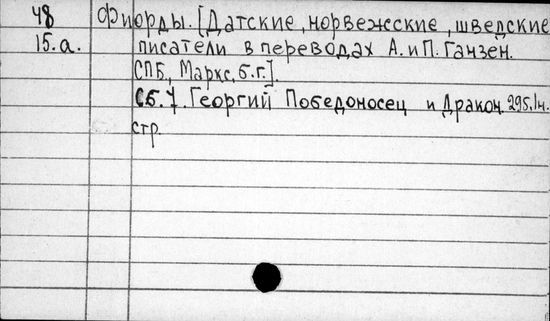 48 Фиорды. [Датские, норвежские, шведские
15.а. писатели в переводах А. и П. Ганзен.
СПБ, Маркс, б.г.].
Сб.7. Георгий Победоносец и Дракон. 295.1н.
стр.